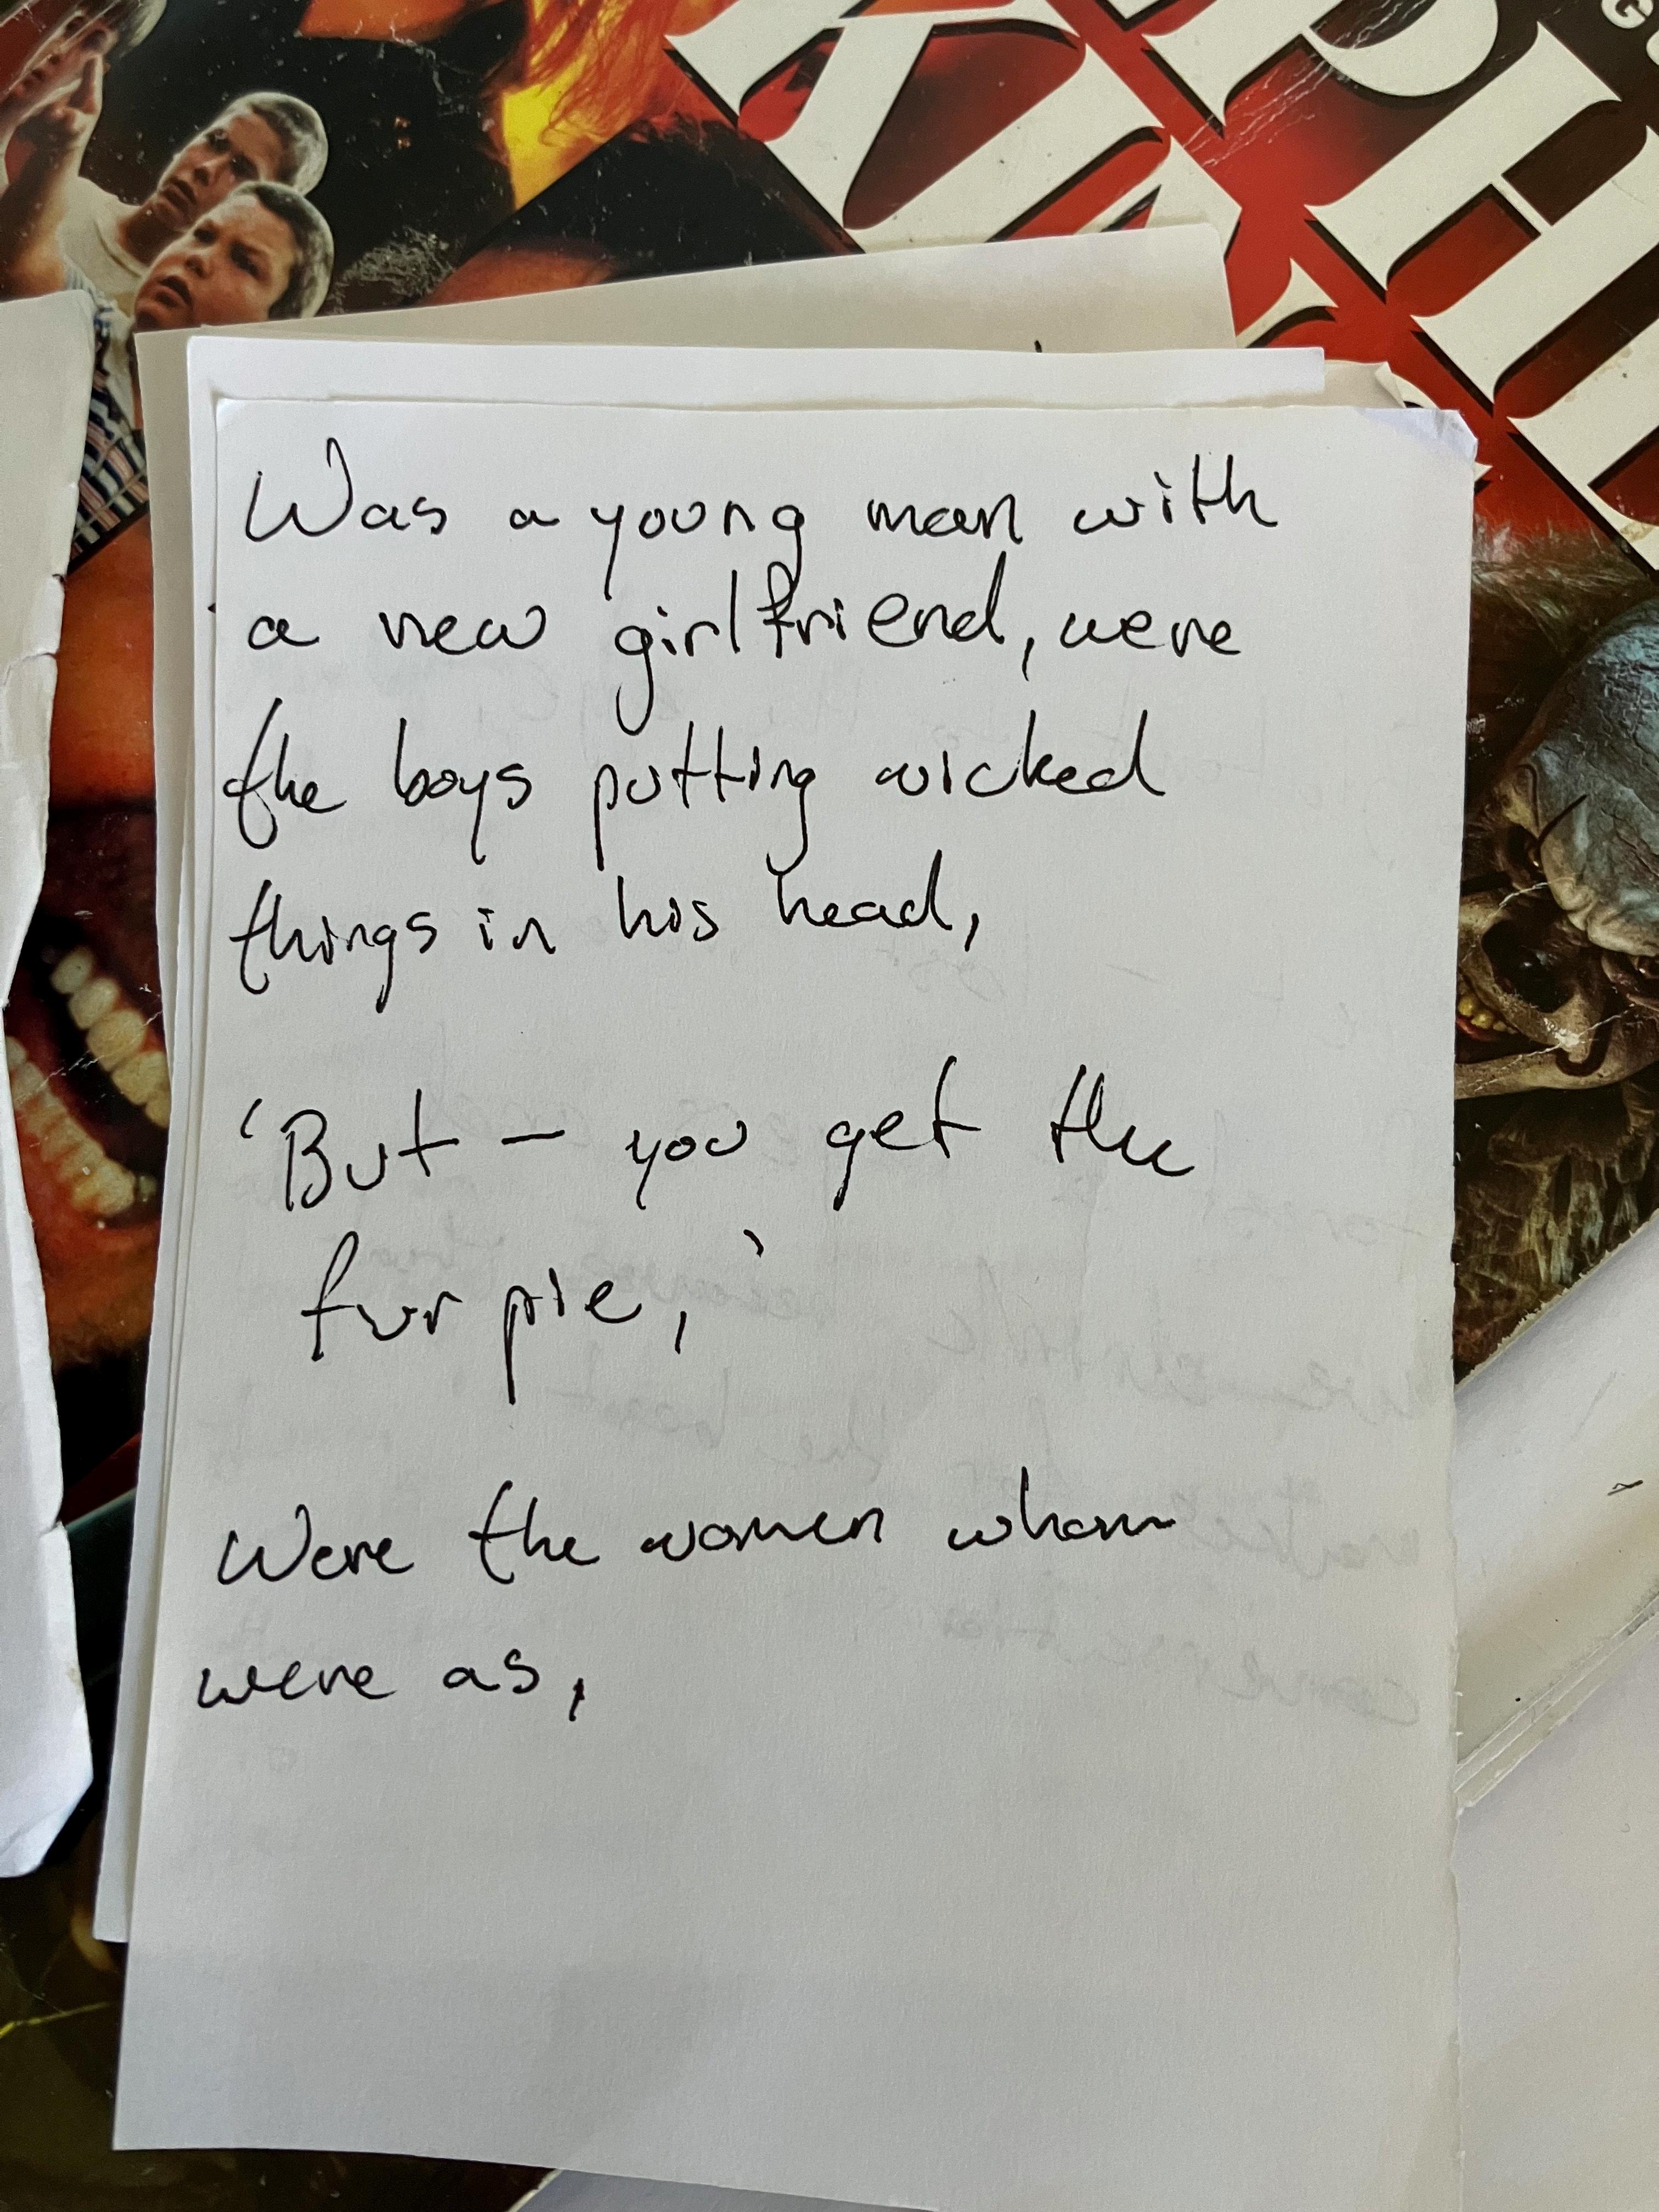 Was a young man with
a new girlfriend, were
the boys putting wicked
things in his head,
'But — you get the
fur pie,'
Were the women whom
were as,